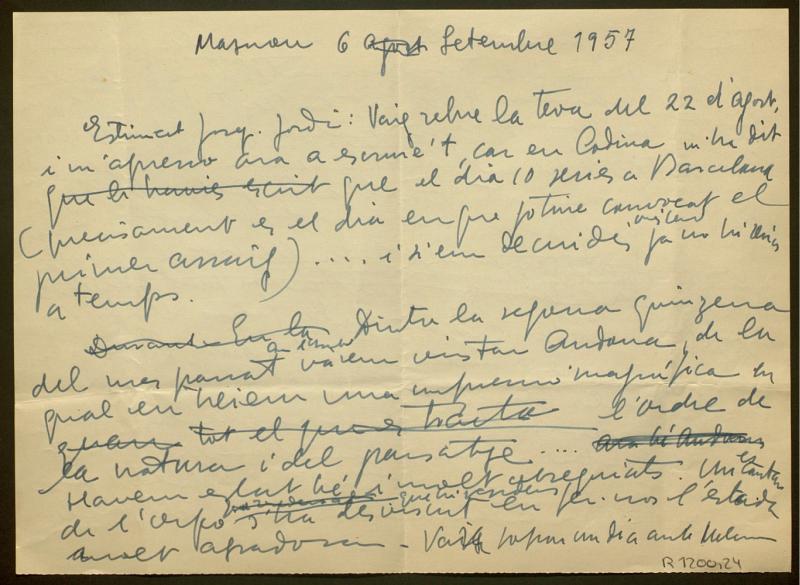 Masnou 6 agost Setembre 1957
Estimat Josep. Jordi: Vaig rebre la teva del 22 d'agost,
i m'apresso ara a escriure't, car en Codina m'ha dit
que li havies escrit que el dia 10 series a Barcelona
(precisament es el dia en que jo tinc convocat el
primer assaig) .... i si em decideixo ja no hi
a temps.
Durant En la Dintre la segona quinzena
del mes passat varem visitar Andorra, de la
qual en teiem una impressió magnífica en
quan tot el que es tracta l'ordre de
la natura i del paisatge ....
Havem estat bé i molt obsequiats. Un
de l'orfeó s'ha desviscut en fer-nos l'estada
molt agradosa - Vaig un dia amb
R 1200,24